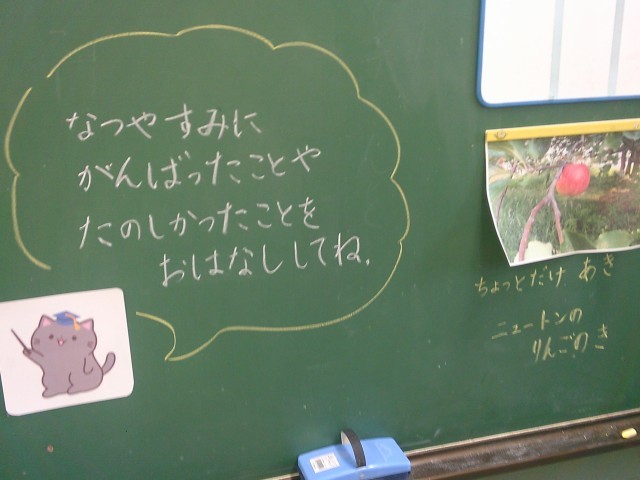 なつやすみに
がんばったことや
たのしかったことを
おはなししてね.
ちょっとだけ あき
ニュートンの
りんごのき